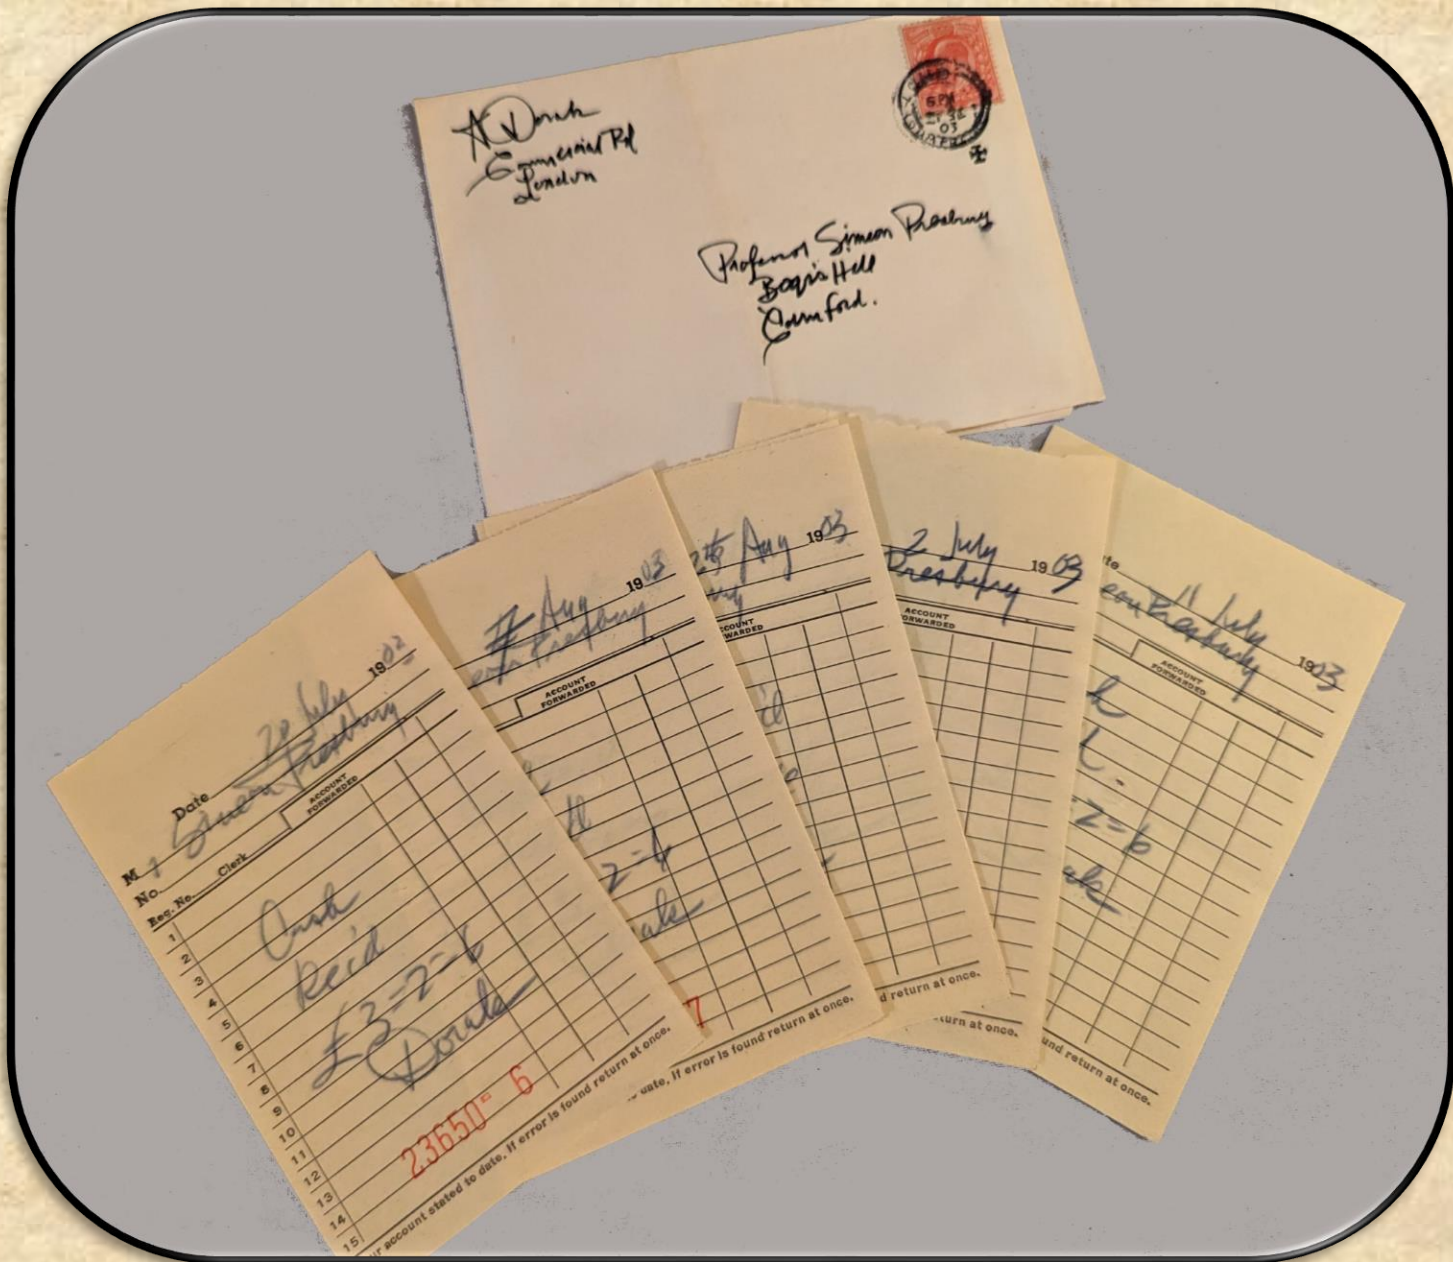 A Dorak
Commercial Rd
London
6 PM
SE
03
Professor Simeon Presbury
Hall
Camford.
20 July 1902
Date
Simeon Presbury
M
No.
ACCOUNT
FORWARDED
Reg. No. Clerk
1
2
3
4
5
6
7
8
9
10
11
12
13
14
15
Cash
Paid
£3=2=6
Dorak
23650- 6
ur account stated to date, If error is found return at once.
Aug 1903
eon Presbury
ACCOUNT
FORWARDED
2=6
ak
7
date, If error is found return at once.
Aug 1903
COUNT
WARDED
d return at once.
2 July 1903
Presbury
ACCOUNT
ORWARDED
turn at once.
te
11 July 1903
eon Presbury
ACCOUNT
FORWARDED
h
=2=6
ak
und return at once.